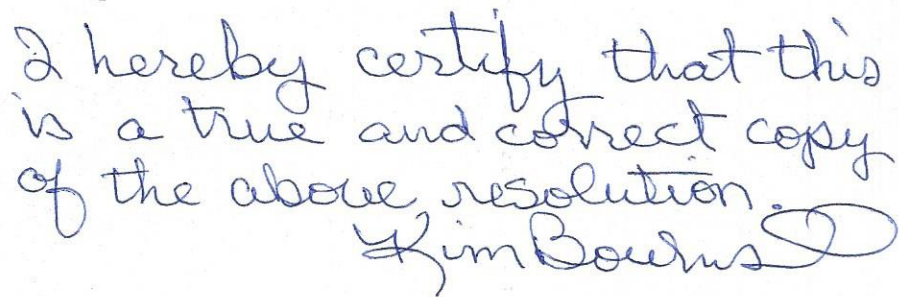 I hereby certify that this
is a true and correct copy
of the above resolution.
Kim Bourns